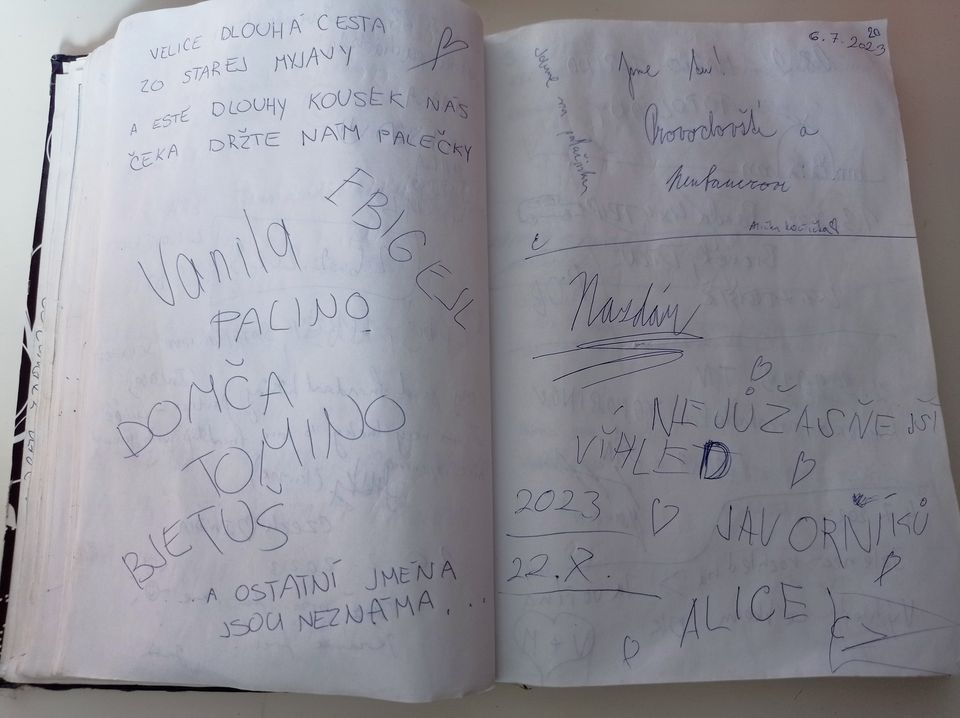 VELICE DLOUHÁ CESTA
ZO STAREJ MYJAVY
A ESTĚ DLOUHY KOUSEK NÁS
ČEKA DRŽTE NÁM PALEČKY
FBIGESL
Vanila
PALINO
DOMČA
TOMINO
BJETUŠ
...A OSTATNÍ JMÉNA
JSOU NEZNÁMA...
6.7.2023
20
Jsme tu!
Provodovští a
Neubauerovi
Nazdár
NEJŮŽASŇEJŠÍ
VÍHLED
2023
JAVORŇÍKŮ
22.8.
ALICE